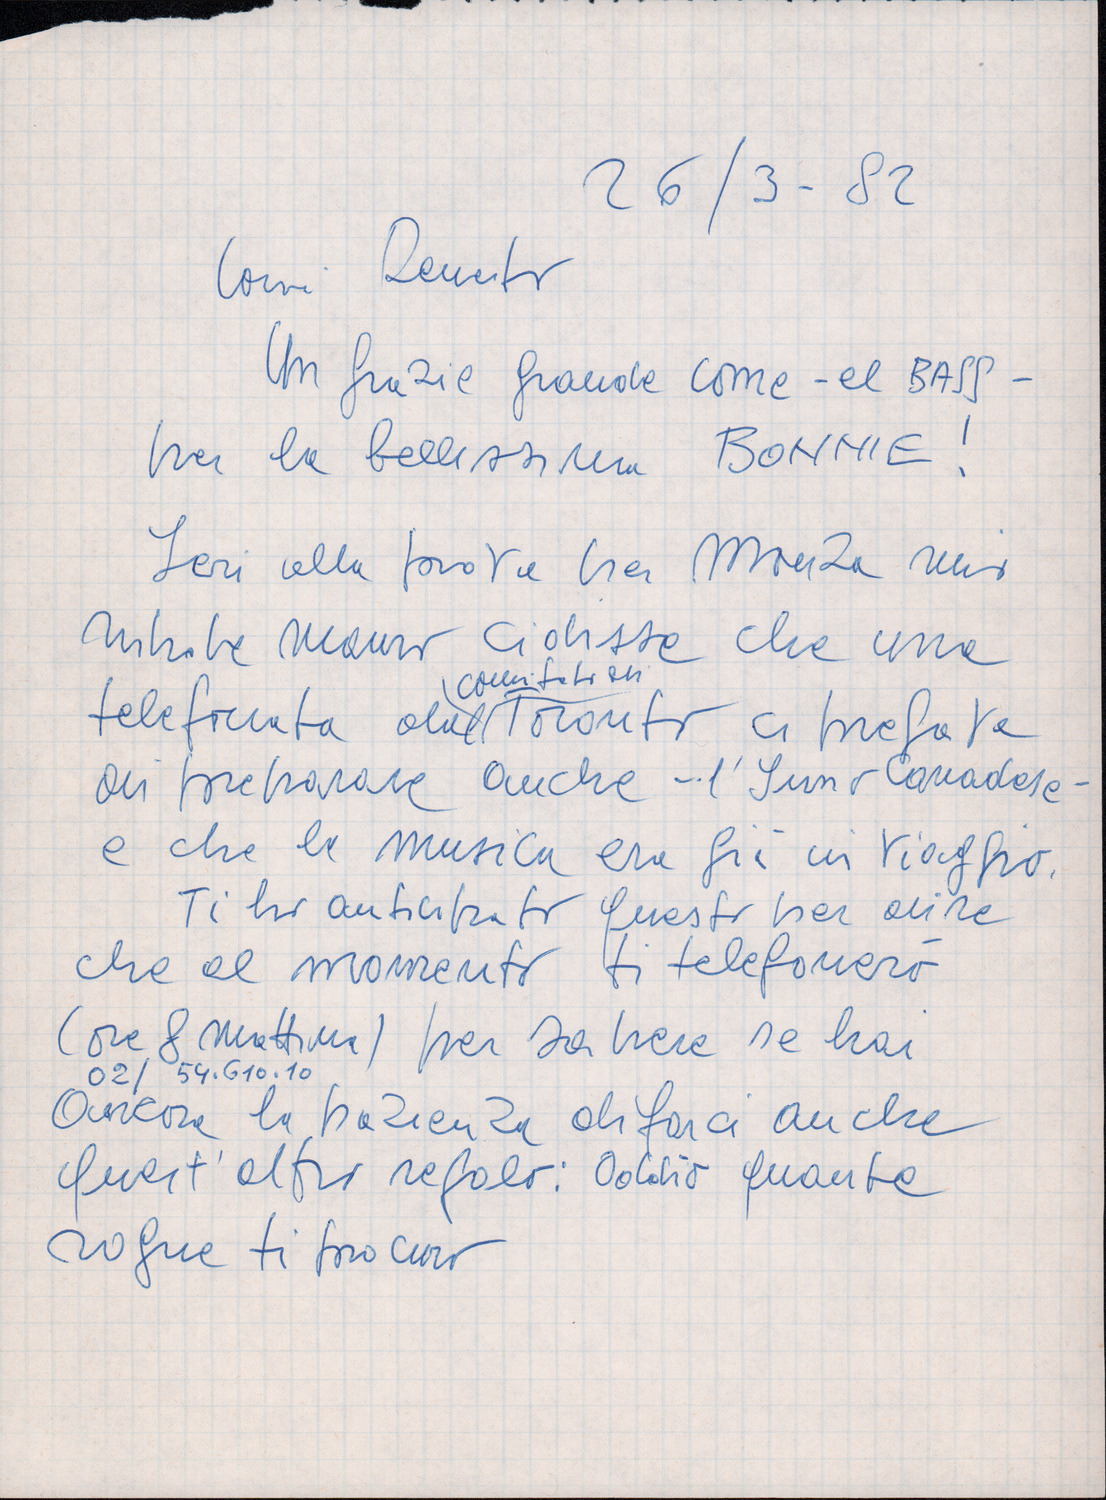 26/3-82
Caro Renato
Un grazie grande come - el BASS -
per la bellissima BONNIE!
Ieri alla prova per Monza mio
nipote Mauro ci disse che una
telefonata dal Toronto ci pregava
di preparare anche - l'Inno Canadese -
e che la musica era già in viaggio.
Ti ho anticipato questo per dire
che al momento ti telefonerò
(ore 8 mattina) per sapere se hai
02/ 54.610.10
Ancora la pazienza di farci anche
quest'altro regalo: Oddio quante
rogne ti procuro